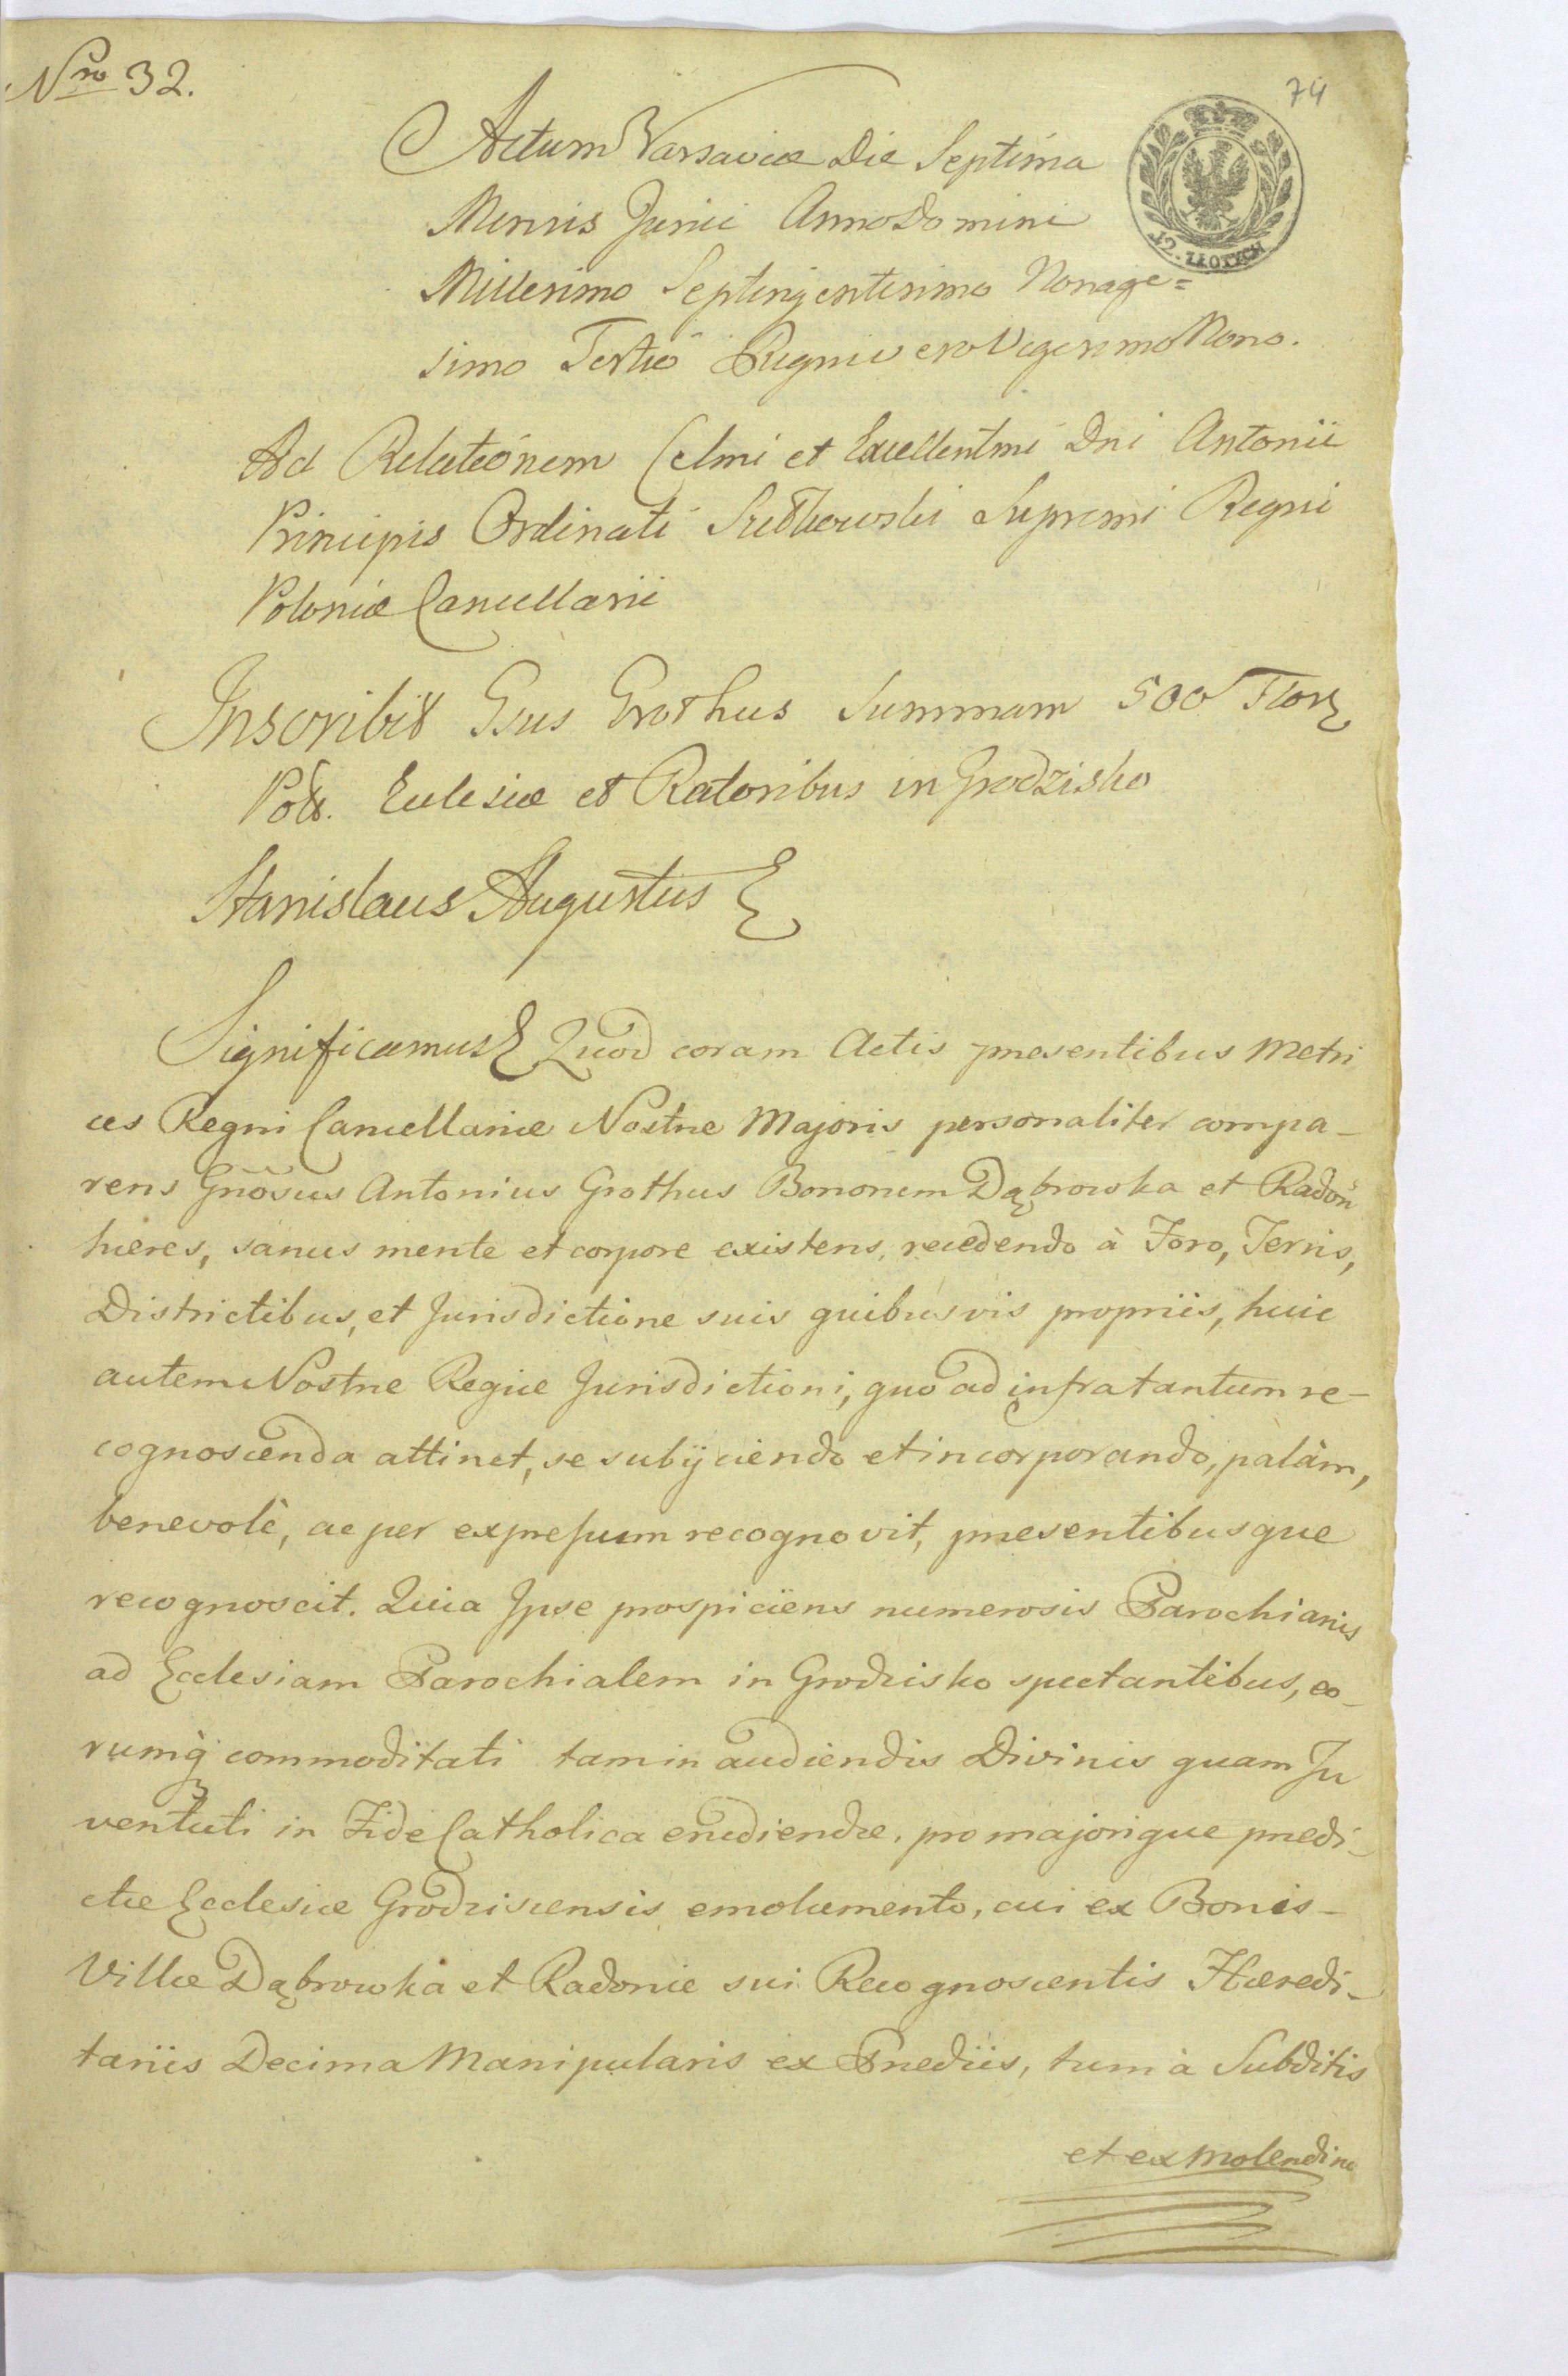 Nro 32.
74
Actum Varsaviæ Die Septima
Mensis Junii Anno Domini
Millesimo Septingentesimo Nonage=
simo Tertio Regni vero Vigesimo Nono.
12. ZŁOTYCH
Ad Relationem Celmi et Excellentmi Dni Antonii
Principis Ordinati Sułkowski Supremi Regni
Poloniæ Cancellarii
Inscribit Gsus Grothus Summam 500 Flor
Pol. Eclesiæ et Ratoribus in Grodzisko
Stanislaus Augustus
Significamus Quod coram Actis præsentibus Metri
ces Regni Cancellariæ Nostræ Majoris personaliter compa-
rens Gnosus Antonius Grothus Bonorum Dąbrowka et Radoń
hæres, sanus mente et corpore existens, recedendo à Foro, Terris,
Districtibus, et Jurisdictione suis quibusvis propriis, huic
autem Nostræ Regiæ Jurisdictioni, quo ad infra tantum re-
cognoscenda attinet, se subijciendo et incorporando, palàm,
benevolè, ac per expressum recognovit, præsentibusque
recognoscit. Quia Ipse prospiciens numerosis Parochianis
ad Ecclesiam Parochialem in Grodzisko spectantibus, eo-
rumq commoditati tam in audiendis Divinis quam Ju
ventuti in Fide Catholica erudiendæ, pro majorique prædi-
ctæ Ecclesiæ Grodziscensis emolumento, cui ex Bonis-
Villæ Dąbrowka et Radonie sui Recognoscentis Hæredi-
tariis Decima Manipularis ex Prædiis, tum à Subditis
et ex Molendino